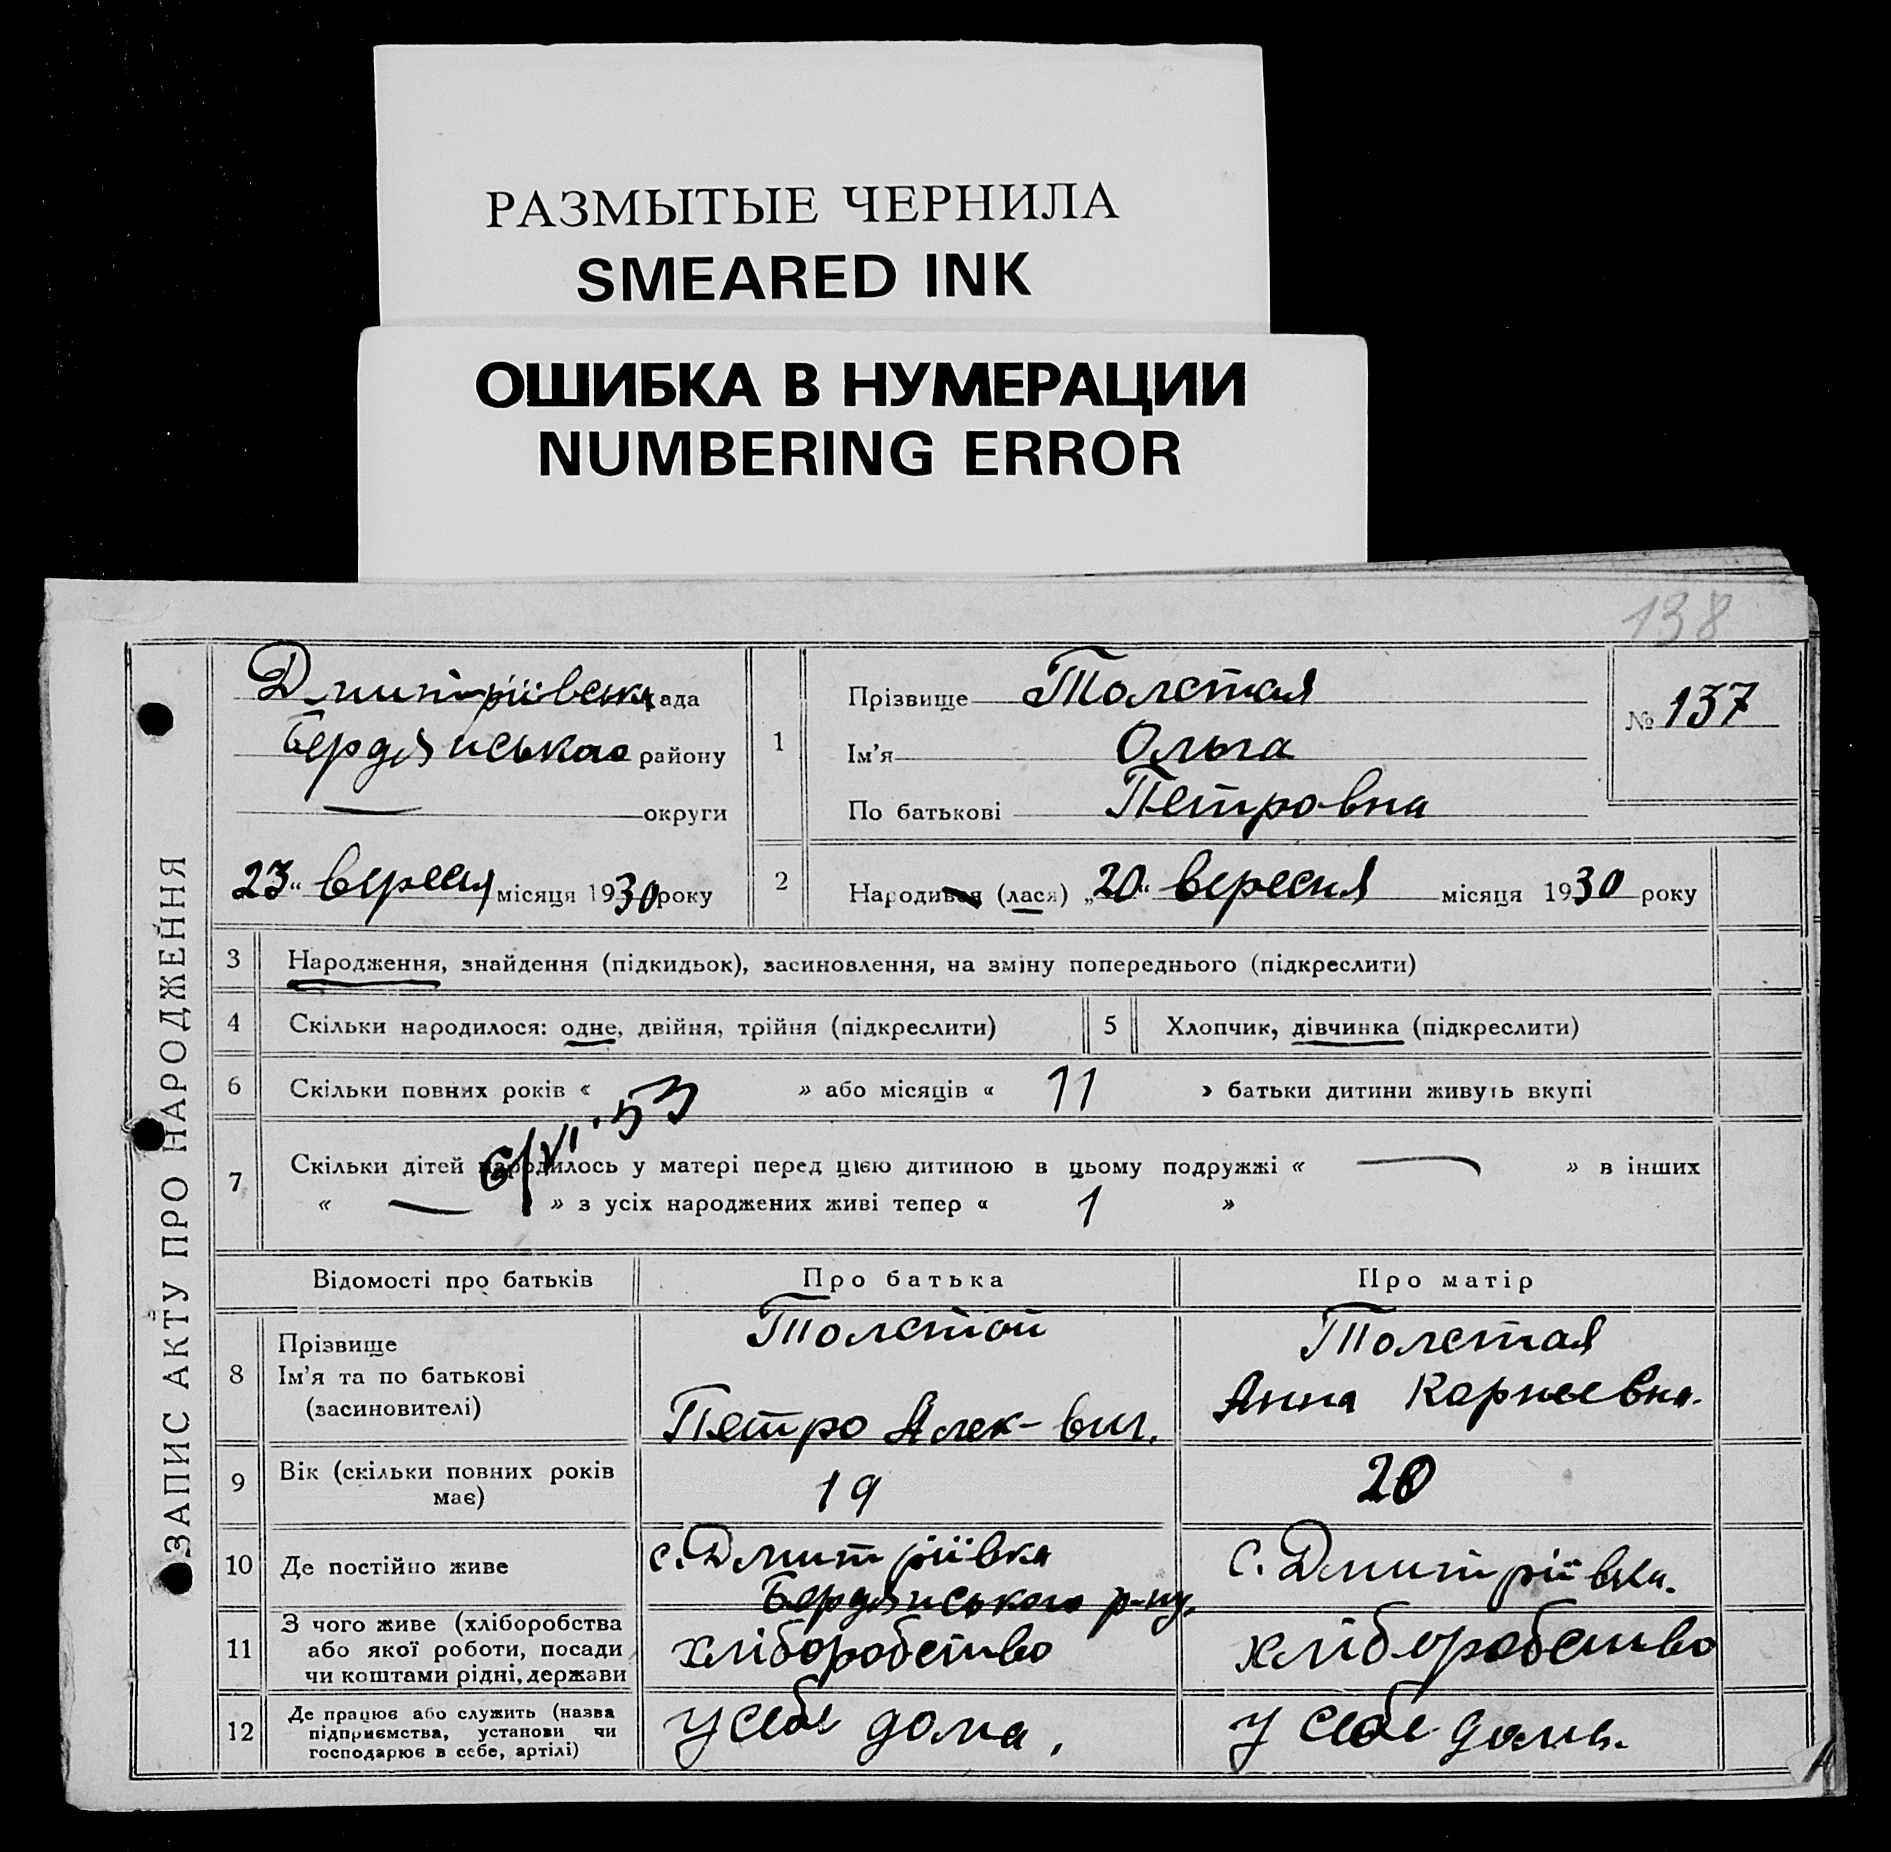 РАЗМЫТЫЕ ЧЕРНИЛА
SMEARED INK
ОШИБКА В НУМЕРАЦИИ
NUMBERING ERROR
138
ЗАПИС АКТУ ПРО НАРОДЖЕННЯ
Дмитріівська рада
Бердянського району
— округи
23 " вересня місяця 1930 року
1
Прізвище Толстая
Ім'я Ольга
По батькові Петровна
№ 137
2
Народився (лася) „20" вересня місяця 1930 року
3 Народження, знайдення (підкидьок), засиновлення, на зміну попереднього (підкреслити)
4 Скільки народилося: одне, двійня, трійня (підкреслити) 5 Хлопчик, дівчинка (підкреслити)
6 Скільки повних років « » або місяців « 11 » батьки дитини живуть вкупі
6/VI 53
7 Скільки дітей народилось у матері перед цією дитиною в цьому подружжі « — » в інших
« — » з усіх народжених живі тепер « 1 »
Відомості про батьків Про батька Про матір
8 Прізвище
Ім'я та по батькові
(засиновителі)
Толстой
Петро Алек-вич.
Толстая
Анна Карпеевна.
9 Вік (скільки повних років
має)
19
20
10 Де постійно живе
с. Дмитріівка
Бердянського р-ну.
с. Дмитріівка.
11 З чого живе (хліборобства
або якої роботи, посади
чи коштами рідні, держави
хліборобство
хліборобство
12 Де працює або служить (назва
підприємства, установи чи
господарює в себе, артілі)
у себе дома.
у себе дома.